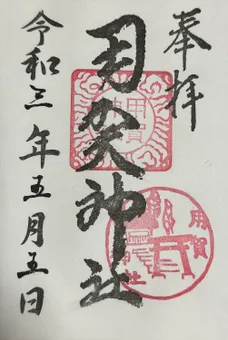 奉拝
用賀神社
用賀
神社
令和三年五月五日